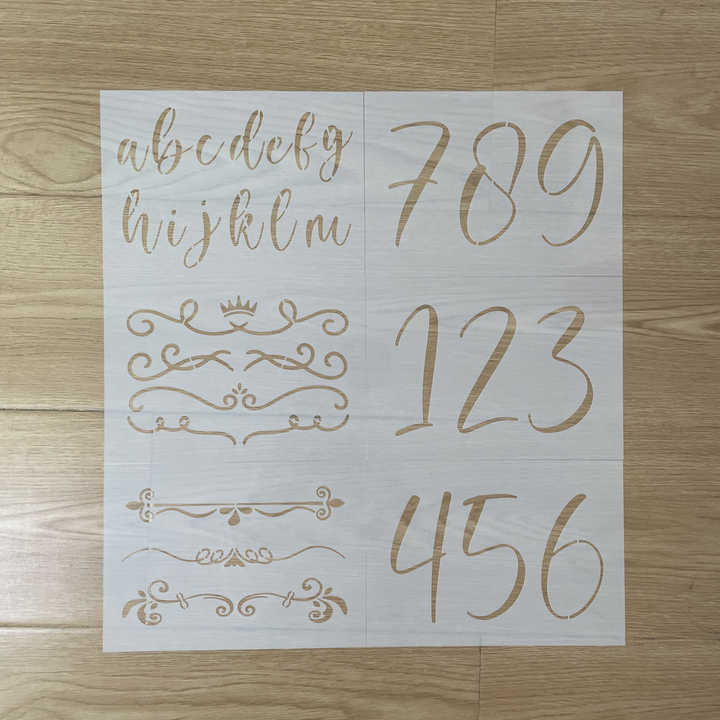 abcdefg
hijklm
789
123
456